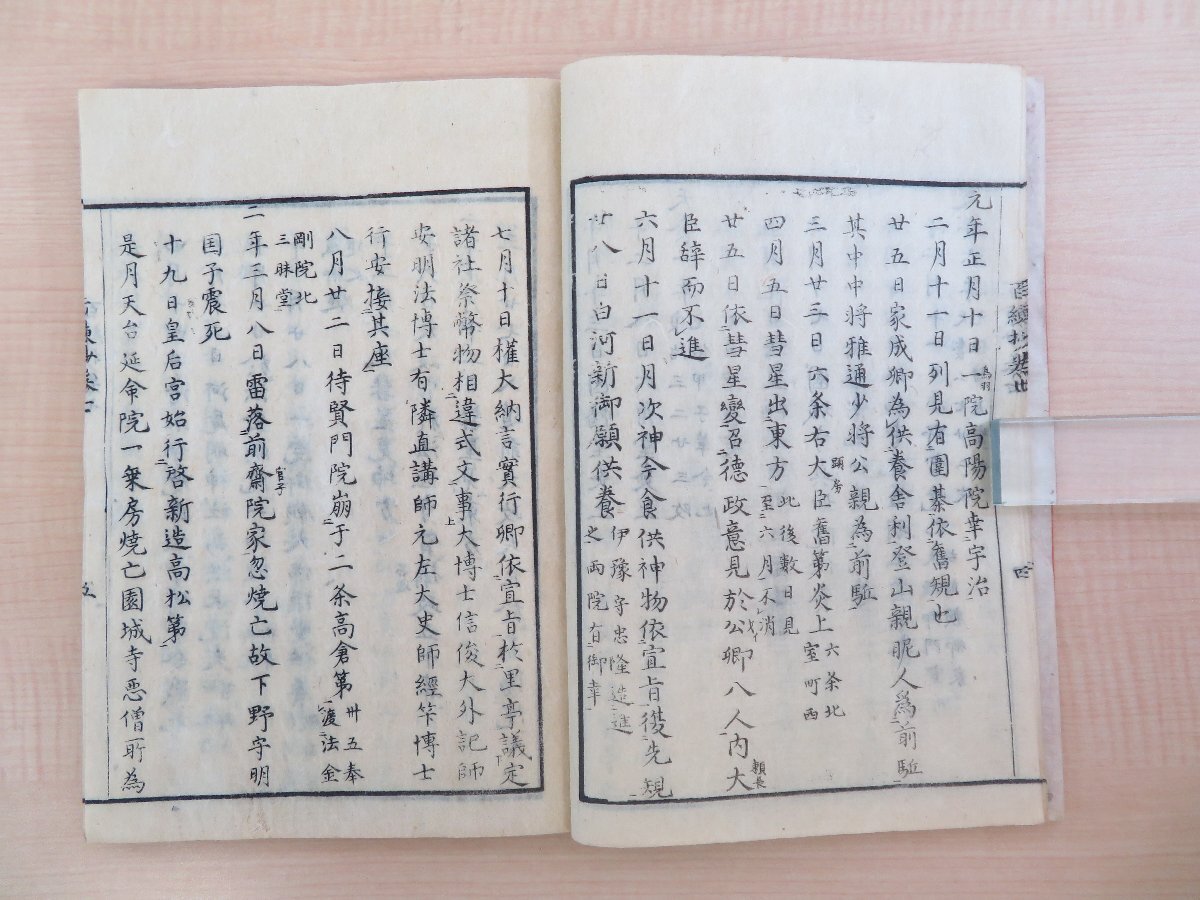 元年正月十日一院高陽院幸宇治
鳥羽
二月十一日列見有圍碁依舊規也
廿五日家成卿為供養舎利登山親昵人為前駈
其中中将雅通少将公親為前駈
三月廿三日六条右大臣舊第炎上六条北室町西
顕房
四月五日彗星出東方此後数日見至六月不消
廿五日依彗星變召徳政意見於公卿八人内大
頼長
臣辞而不進
六月十一日月次神今食供神物依宣旨復先規
廿八日白河新御願供養伊豫守忠隆造進之両院有御幸
四
七月十日權大納言實行卿依宣旨於里亭議定
諸社祭幣物相違式文事大博士信俊大外記師
安明法博士有隣直講師元左大史師經笇博士
行安接其座
八月廿二日待賢門院崩于二条高倉第卌五奉渡法金剛院北三昧堂
二年三月八日雷落前齋院家忽焼亡故下野守明
官子
国子震死
十九日皇后宮始行啓新造高松第
是月天台延命院一乗房焼亡園城寺悪僧所為
五